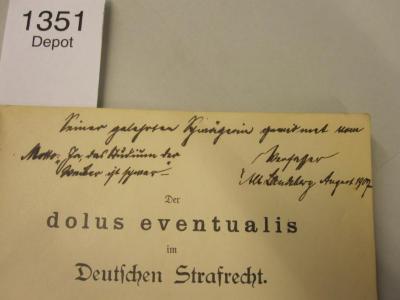 1351
Depot
Seiner gelehrten Schwägerin gewidmet vom
Motto: Ja, das Studium der
Weiber ist schwer.
Verfasser
Alt Landsberg, August 1907
Der
dolus eventualis
im
Deutschen Strafrecht.